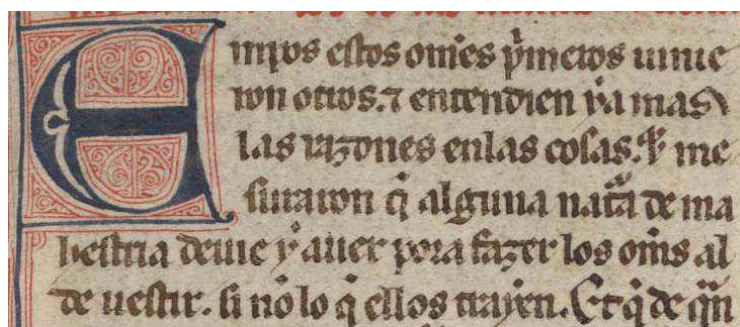 Empos estos om̃es p̃meros uinie
ron otros. ⁊ entendien ya mas
las razones enlas cosas. ⁊ me
suraron q̃ alguna nat̃a de ma
hestria deuie y auer pora fazer los om̃s al
de uestir. si nõ lo q̃ ellos trayen. Et q̃ de q̃n